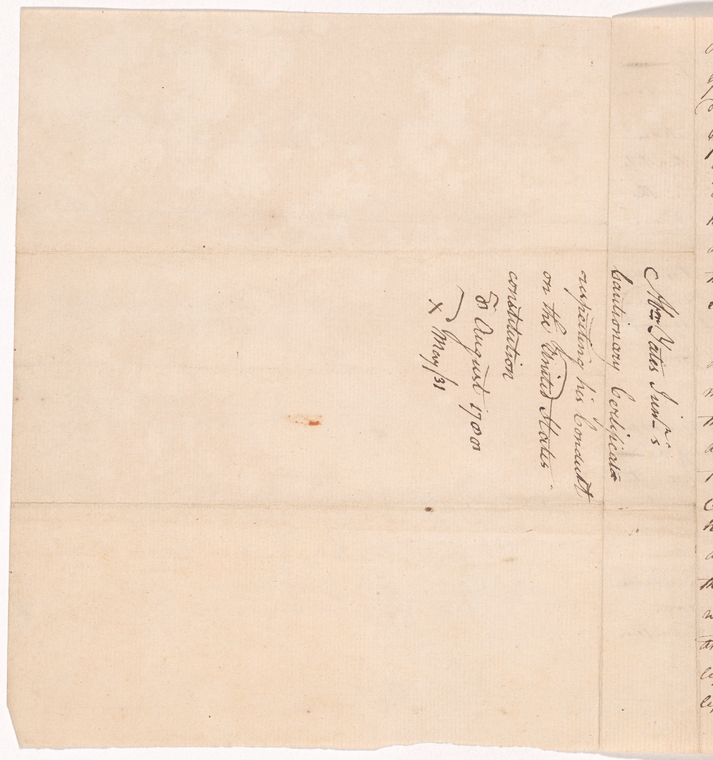 Abm Yates Junr.s
Cautionary Certificate
respecting his Conduct
on the United States
constitution
August 1788
X May/31